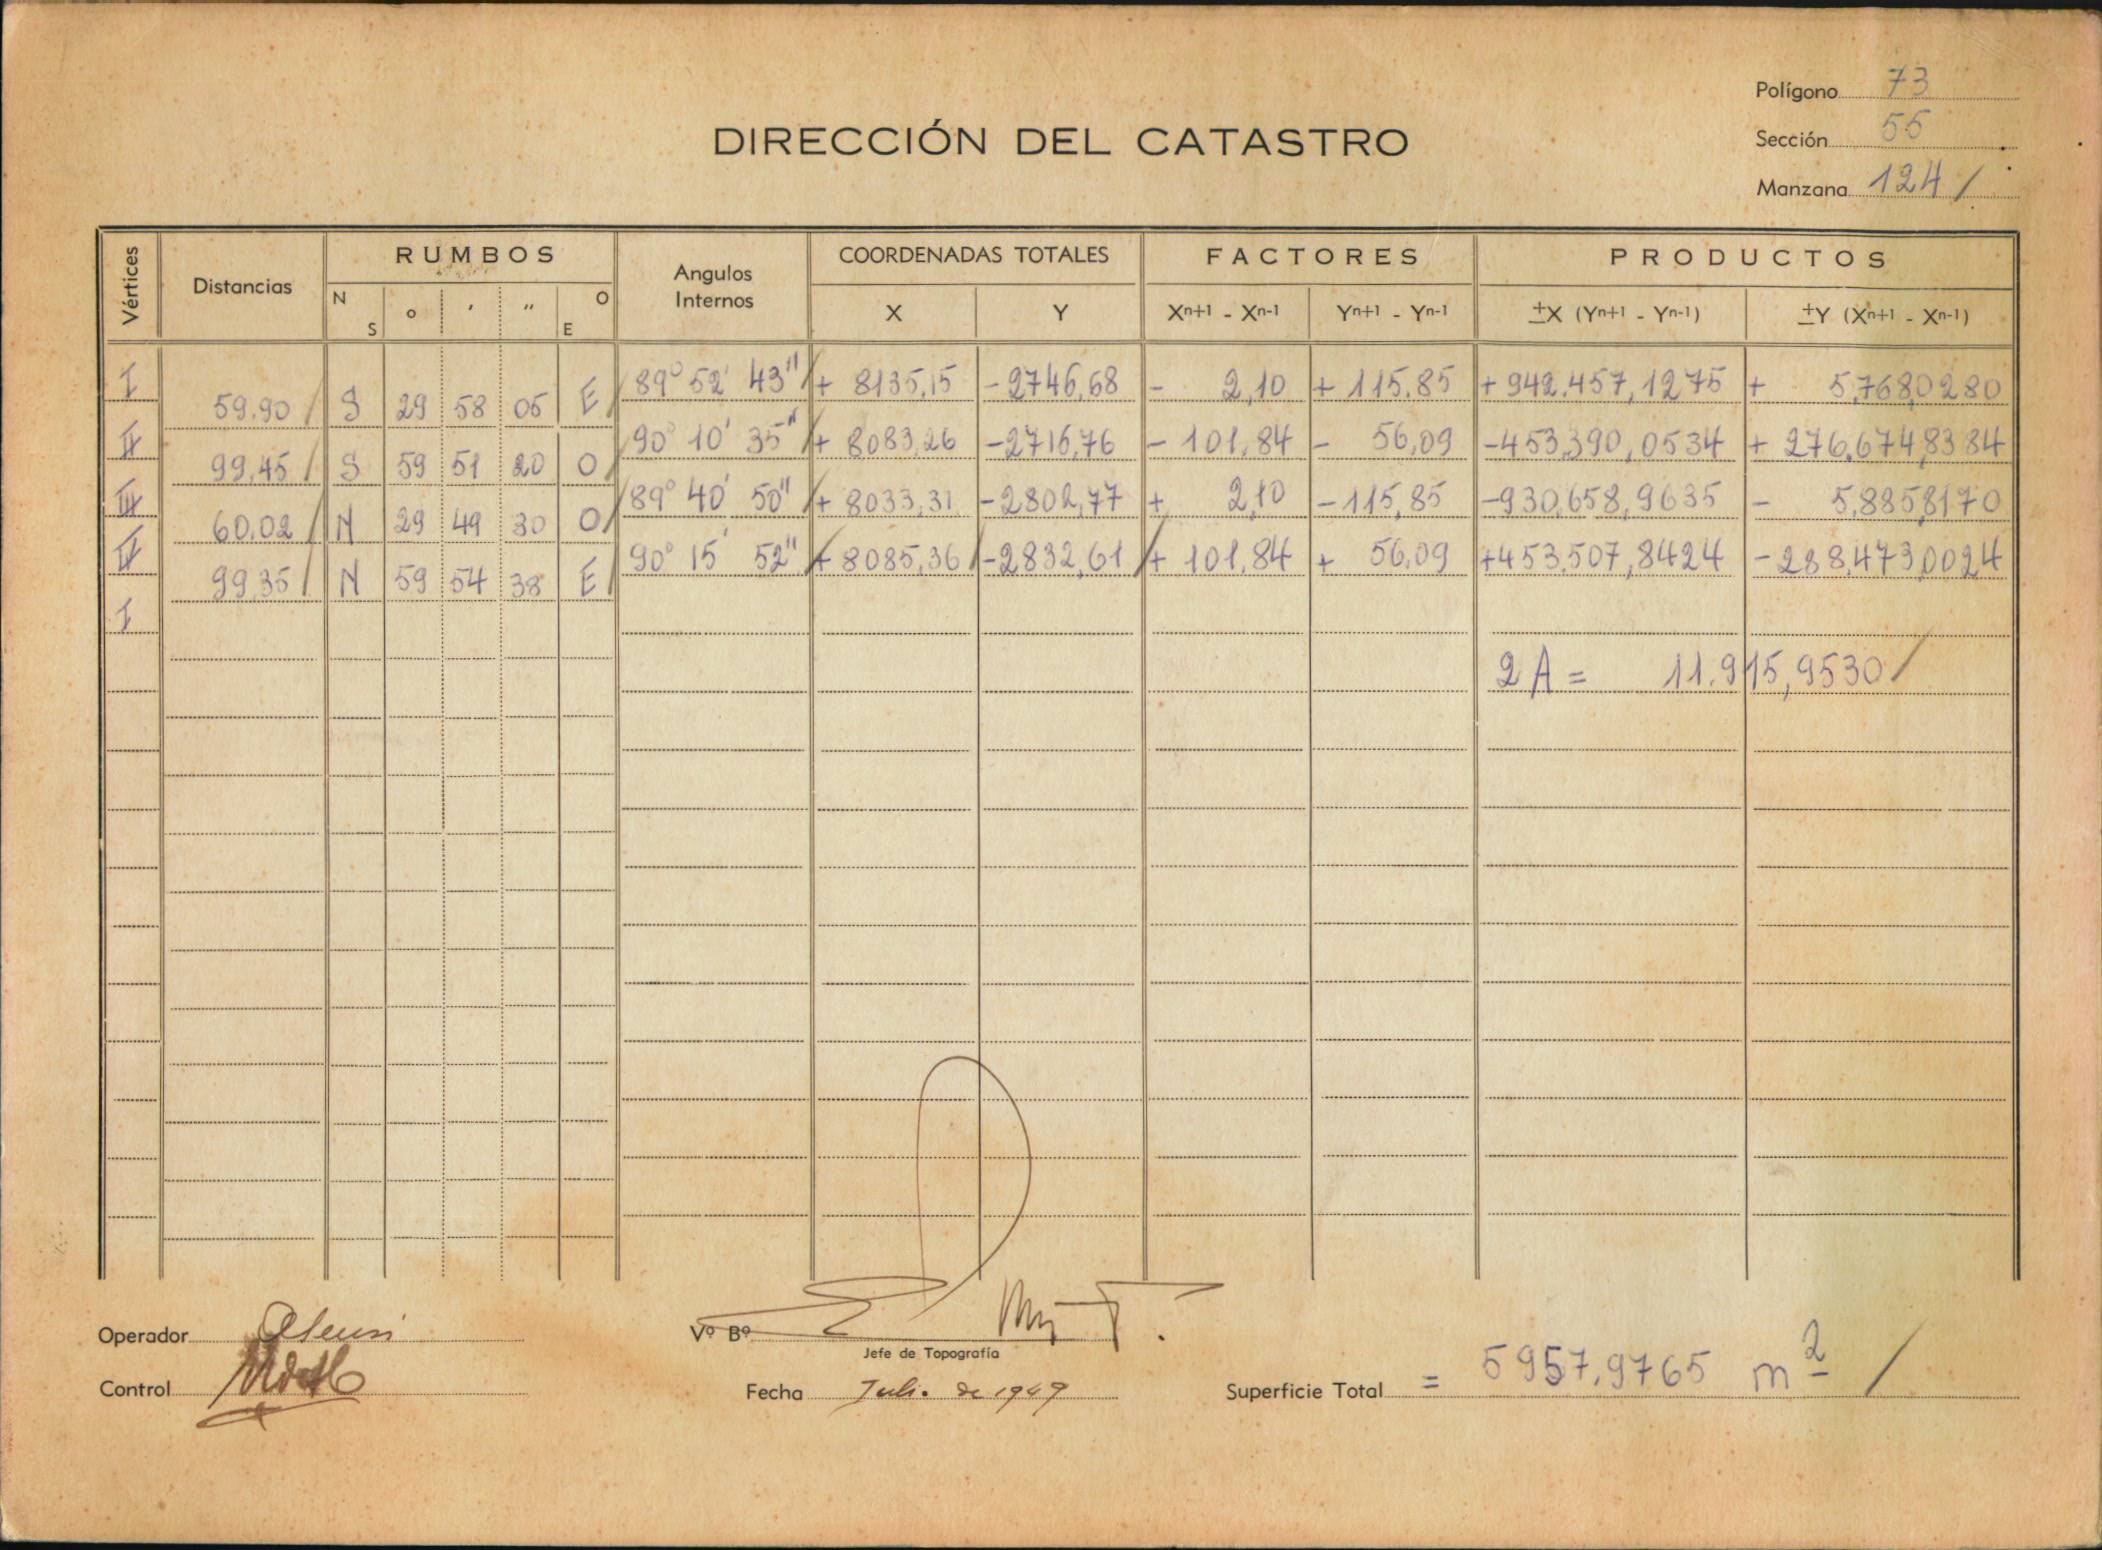 Polígono 73
DIRECCIÓN DEL CATASTRO
Sección 55
Manzana 124 /
Vértices Distancias RUMBOS Angulos Internos COORDENADAS TOTALES FACTORES PRODUCTOS
N S ° ' " E O X Y Xn+1 - Xn-1 Yn+1 - Yn-1 ±X (Yn+1 - Yn-1) ±Y (Xn+1 - Xn-1)
I 89° 52' 43" / + 8135,15 -2746,68 - 2,10 + 115,85 +942.457,1275 + 5.768,0280
59,90 / S 29 58 05 E /
II 90° 10' 35" + 8083,26 -2716,76 - 101,84 - 56,09 -453.390,0534 + 276.674,8384
99,45 / S 59 51 20 O /
III 89° 40' 50" / + 8033,31 -2802,77 + 2,10 -115,85 -930.658,9635 - 5.885,8170
60,02 / N 29 49 30 O /
IV 90° 15' 52" / + 8085,36 / -2832,61 / + 101,84 + 56,09 +453.507,8424 -288.473,0024
99,35 / N 59 54 38 E /
I
2A = 11.915,9530 /
Operador
Vº Bº
Jefe de Topografía
Control
Fecha Julio de 1949
Superficie Total = 5957,9765 m2 /